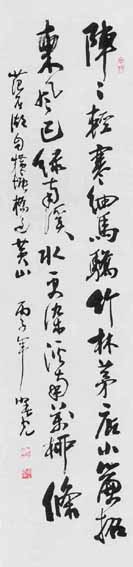 陣々輕寒細馬驕竹林茅店小簾招
東風已綠南溪水更染溪南萬柳條
范石湖自橫塘橋過黃山 丙子年